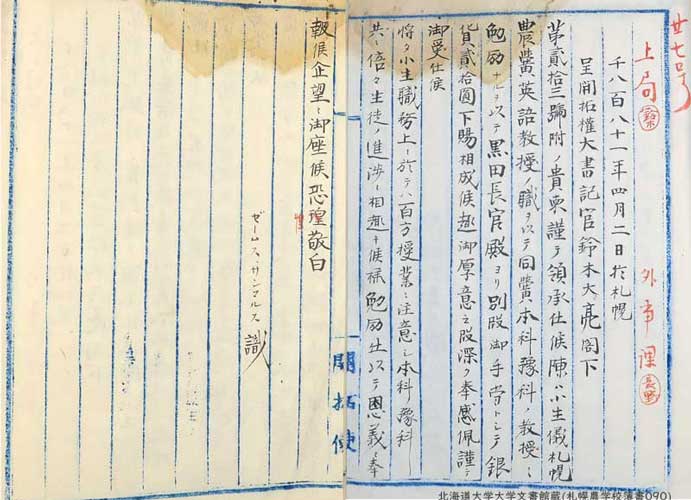 廿七号
上局
外事課 長野
千八百八十一年四月二日於札幌
呈開拓権大書記官鈴木大亮閣下
第貳拾三號附ノ貴柬謹テ領承仕候陳ハ小生儀札幌
農黌英語教授ノ職ヲ以テ同黌本科豫科ノ教授ニ
勉励ナルヲ以テ黒田長官殿ヨリ別段御手當トシテ銀
貨貳拾圓下賜相成候趣御厚意之段深ク奉感佩謹テ
御受仕候
将タ小生職務上ニ於テハ百方授業ニ注意シ本科豫科
共ニ倍々生徒ノ進渉ニ相趣キ候様勉励仕以テ恩義ニ奉
報候企望ニ御座候恐惶敬白
ゼームス、サンマルス 識
開拓使
北海道大学大学文書館蔵(札幌農学校簿書090)